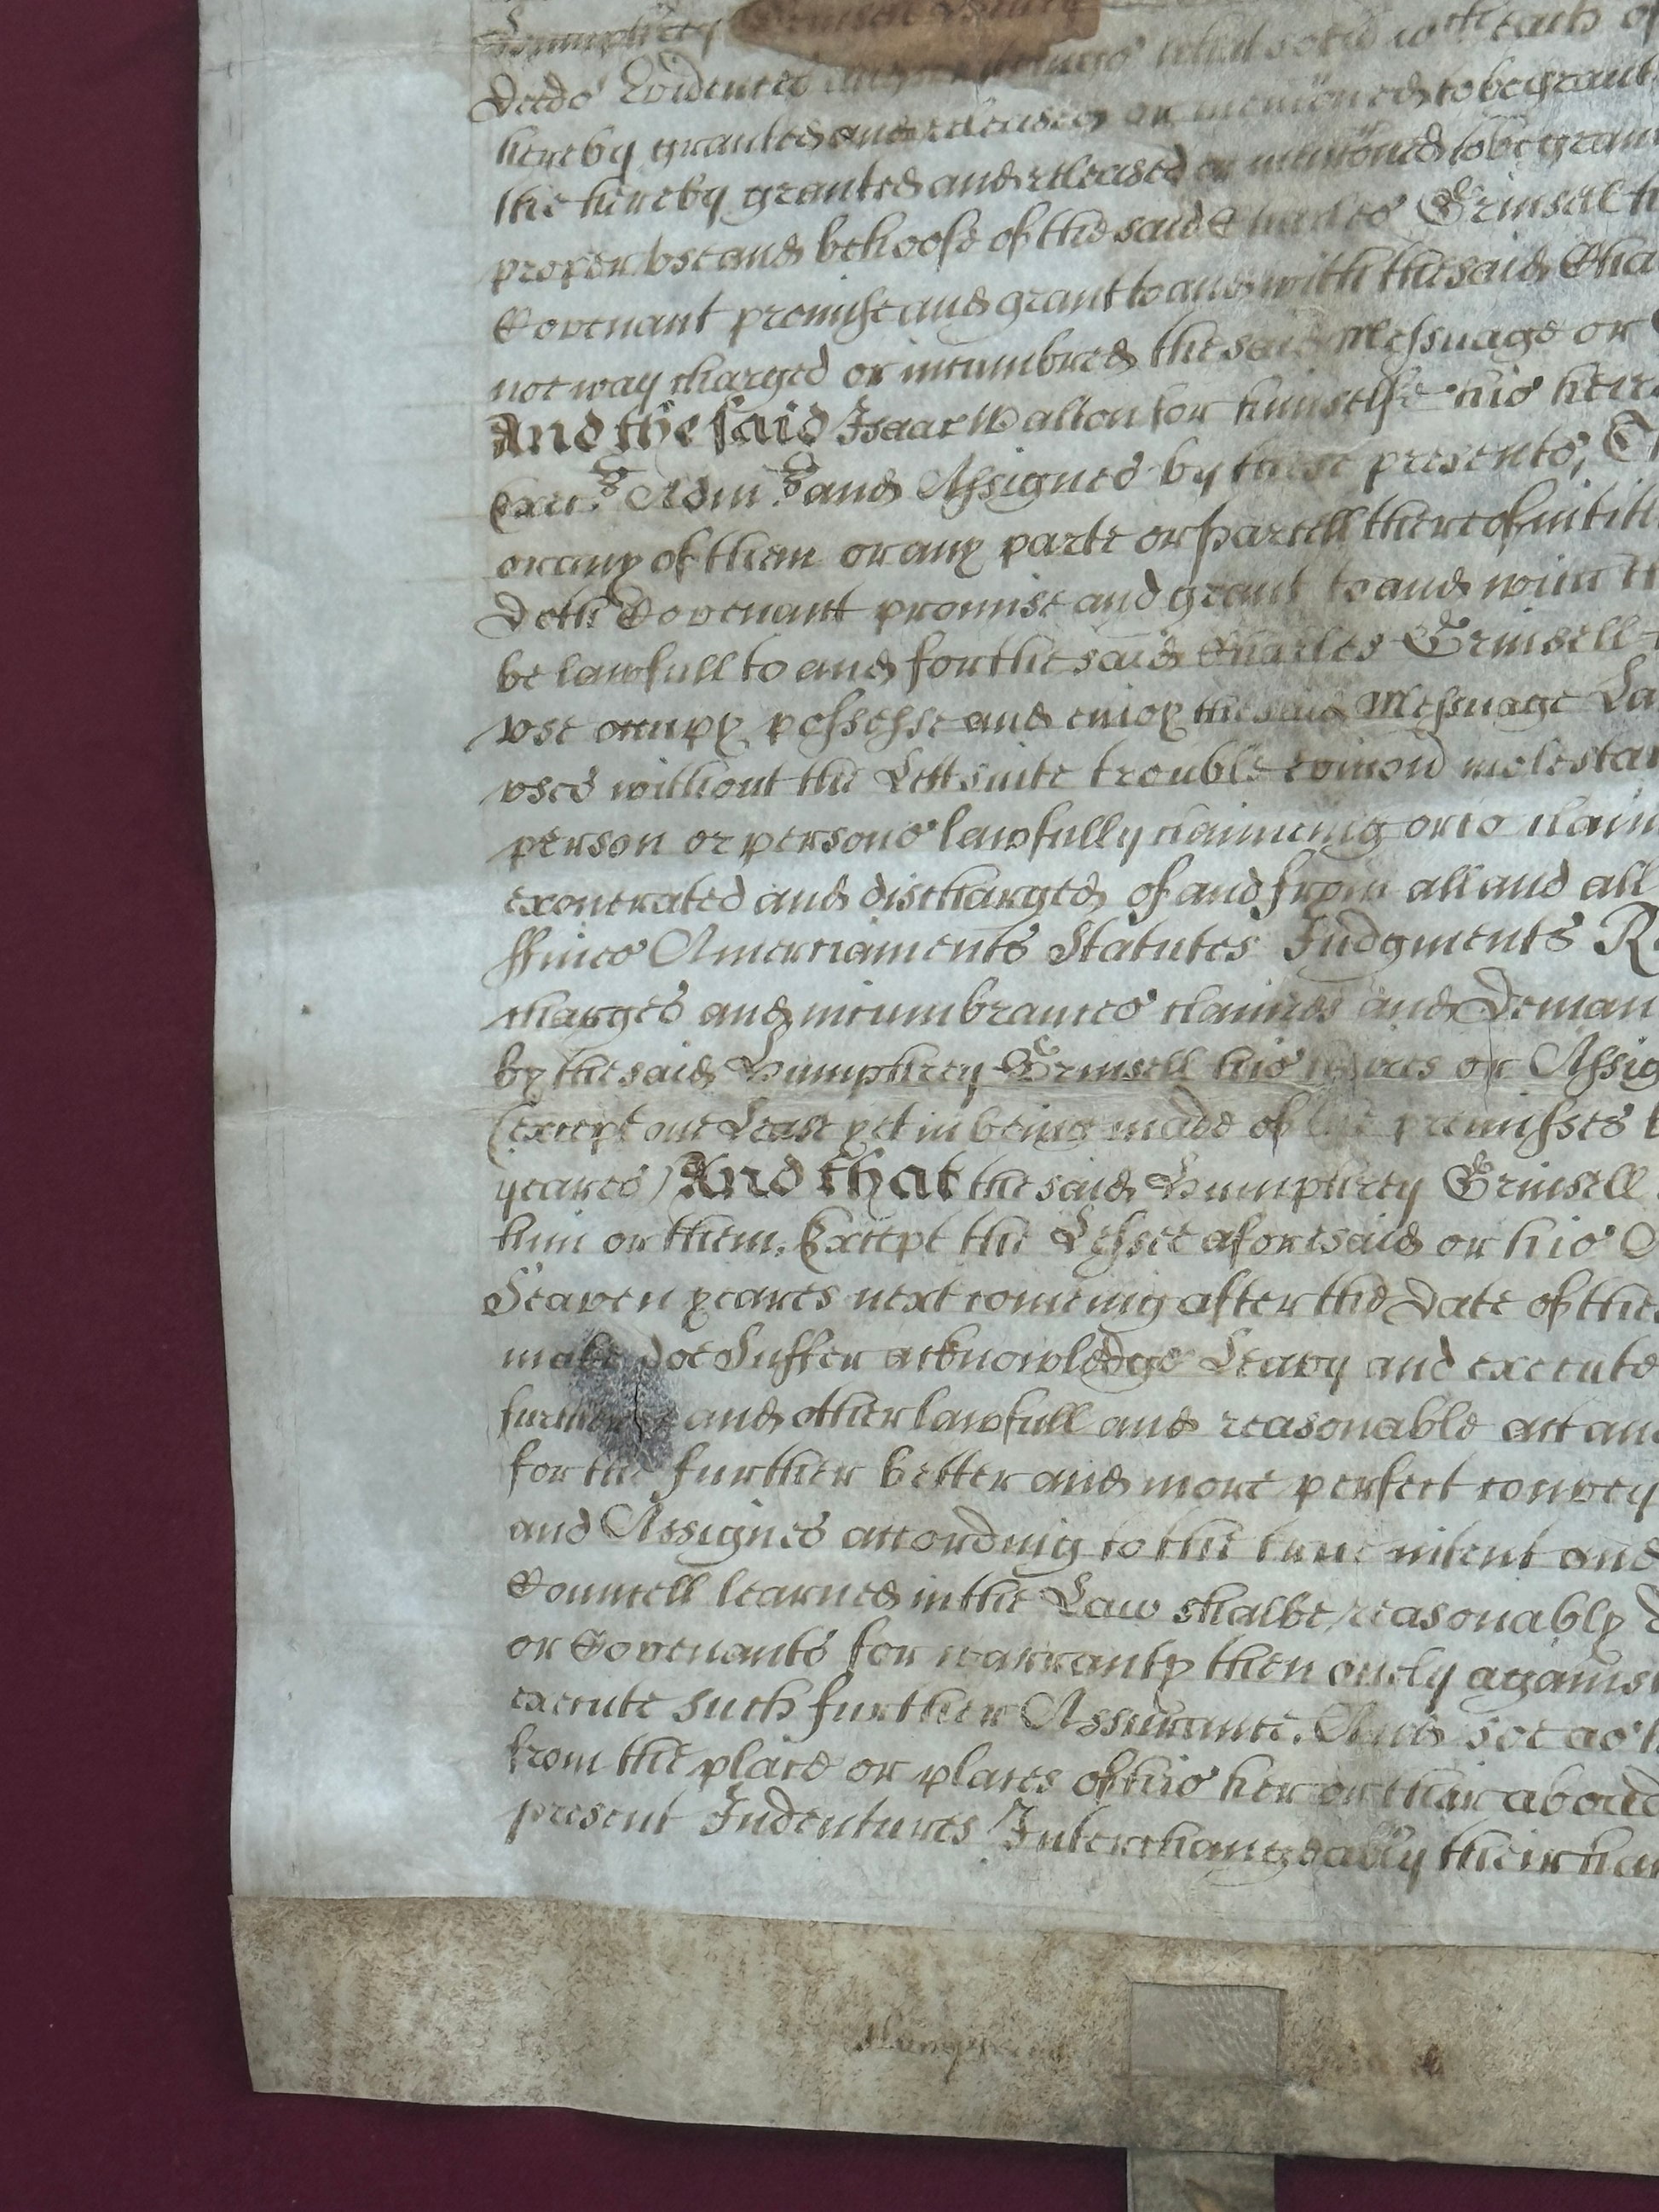 Humphrey Grinsell
Deeds Evidences with each of
hereby granted and released or mencioned to be graunt
the hereby granted and released or mencioned to be graun
proper vse and behoofe of the said Charles Grinsell h
Covenant promise and grant to and with the said Cha
not way charged or incumbred the said Messuage or
And the said Isaac Walton for himselfe his heires
Exec:rs Admi:rs and Assignes by these presents, Th
or any of them or any parte or parcell thereof in titl
Doth Covenant promise and grant to and with th
be lawfull to and for the said Charles Grinsell
vse occupy possesse and enioy the said Messuage La
vses without the Lett suite trouble eviccon molestac
person or persons lawfully claimeing or to claim
exonerated and discharged of and from all and all
ffines Amerciaments Statutes Judgments Re
charges and incumbrances claimes and Deman
by the said Humphrey Grinsell his heires or Assig
(except one Lease yet in being made of the premisses
yeares) And that the said Humphrey Grinsell
him or them, Except the Lessee aforesaid or his
Seaven yeares next comeing after the Date of thes
make doe Suffer acknowledge Leavy and execute
further and other lawfull and reasonable act and
for the further better and more perfect convey
and Assignes according to the true intent and
Councell learned in the Law shalbe reasonably
or Covenants for warranty then onely against
execute such further Assurance, And soe as
from the place or places of his her or their aboad
present Indentures Interchangeably their han
Humphrey